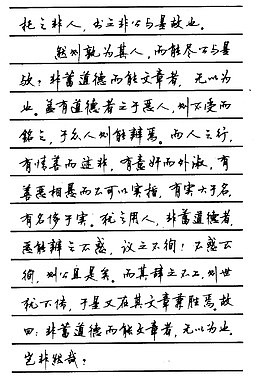 托之非人，书之非公与是故也。
然则孰为其人，而能尽公与是
欤？非蓄道德而能文章者，无以为
也。盖有道德者之于恶人，则不受而
铭之，于众人则能辨焉。而人之行，
有情善而迹非，有意奸而外淑，有
善恶相悬而不可以实指，有实大于名，
有名侈于实。犹之用人，非蓄道德者，
恶能辨之不惑，议之不徇？不惑不
徇，则公且是矣。而其辞之不工，则世
犹不传，于是又在其文章兼胜焉。故
曰：非蓄道德而能文章者，无以为也。
岂非然哉？